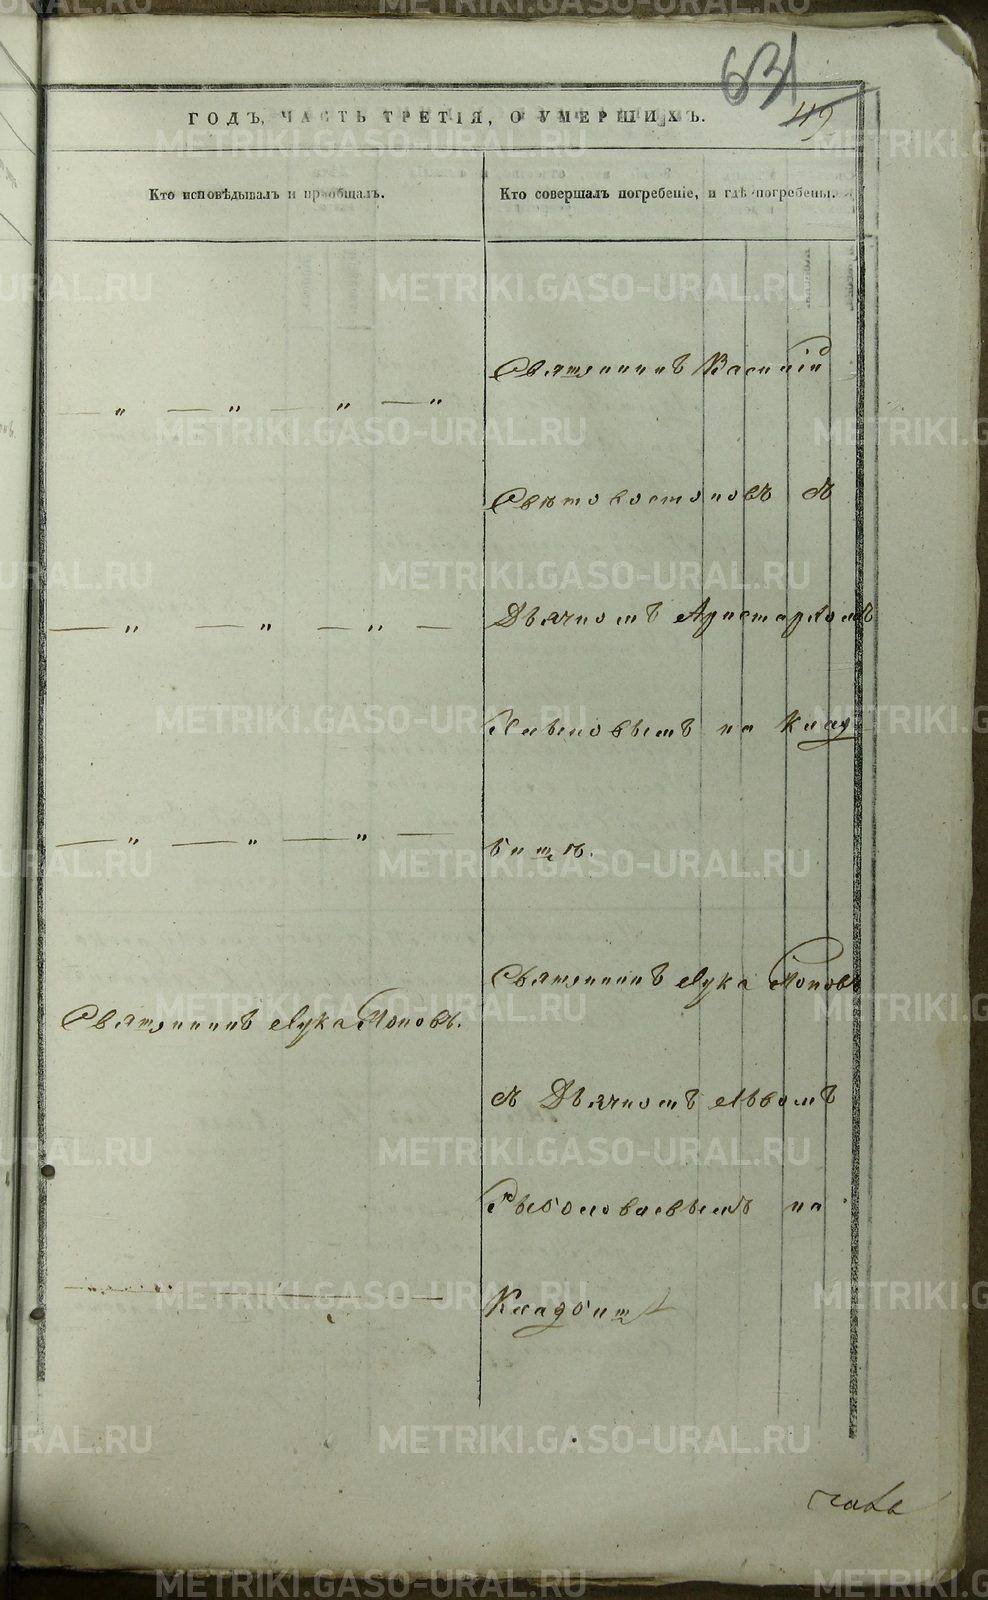 631
49
ГОДЪ, ЧАСТЬ ТРЕТІЯ, О УМЕРШИХЪ.
Кто исповѣдывалъ и пріобщалъ.
Кто совершалъ погребеніе, и гдѣ погребены.
Священникъ Василій
— „ — „ — „ — „
Свѣтовостоковъ съ
— „ — „ — „ —
Дьячкомъ Аристархомъ
на клад-
— „ — „ — „ —
бищѣ.
Священникъ Лука Поповъ
Священникъ Лука Поповъ.
съ Дьячкомъ Львомъ
на
Кладбищѣ
METRIKI.GASO-URAL.RU